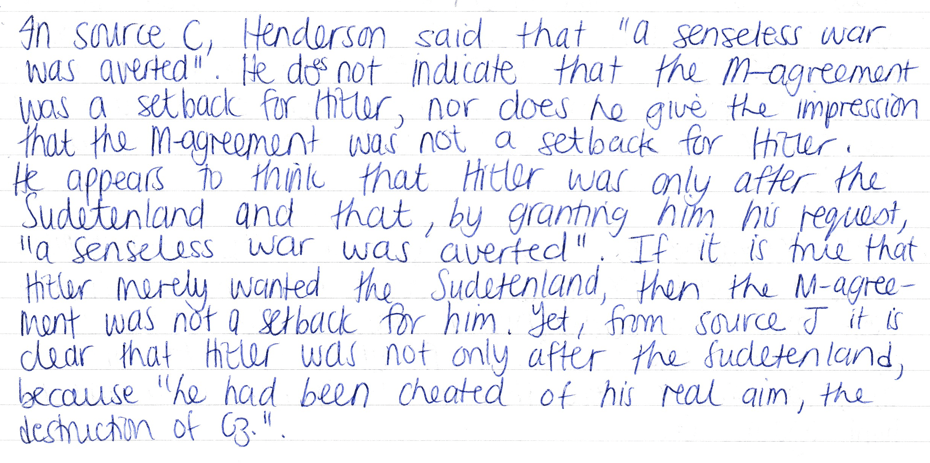 In source C, Henderson said that "a senseless war
was averted". He does not indicate that the M-agreement
was a setback for Hitler, nor does he give the impression
that the M-agreement was not a setback for Hitler.
He appears to think that Hitler was only after the
Sudetenland and that, by granting him his request,
"a senseless war was averted". If it is true that
Hitler merely wanted the Sudetenland, then the M-agree-
ment was not a setback for him. Yet, from source J it is
clear that Hitler was not only after the Sudetenland,
because "he had been cheated of his real aim, the
destruction of Cz.".